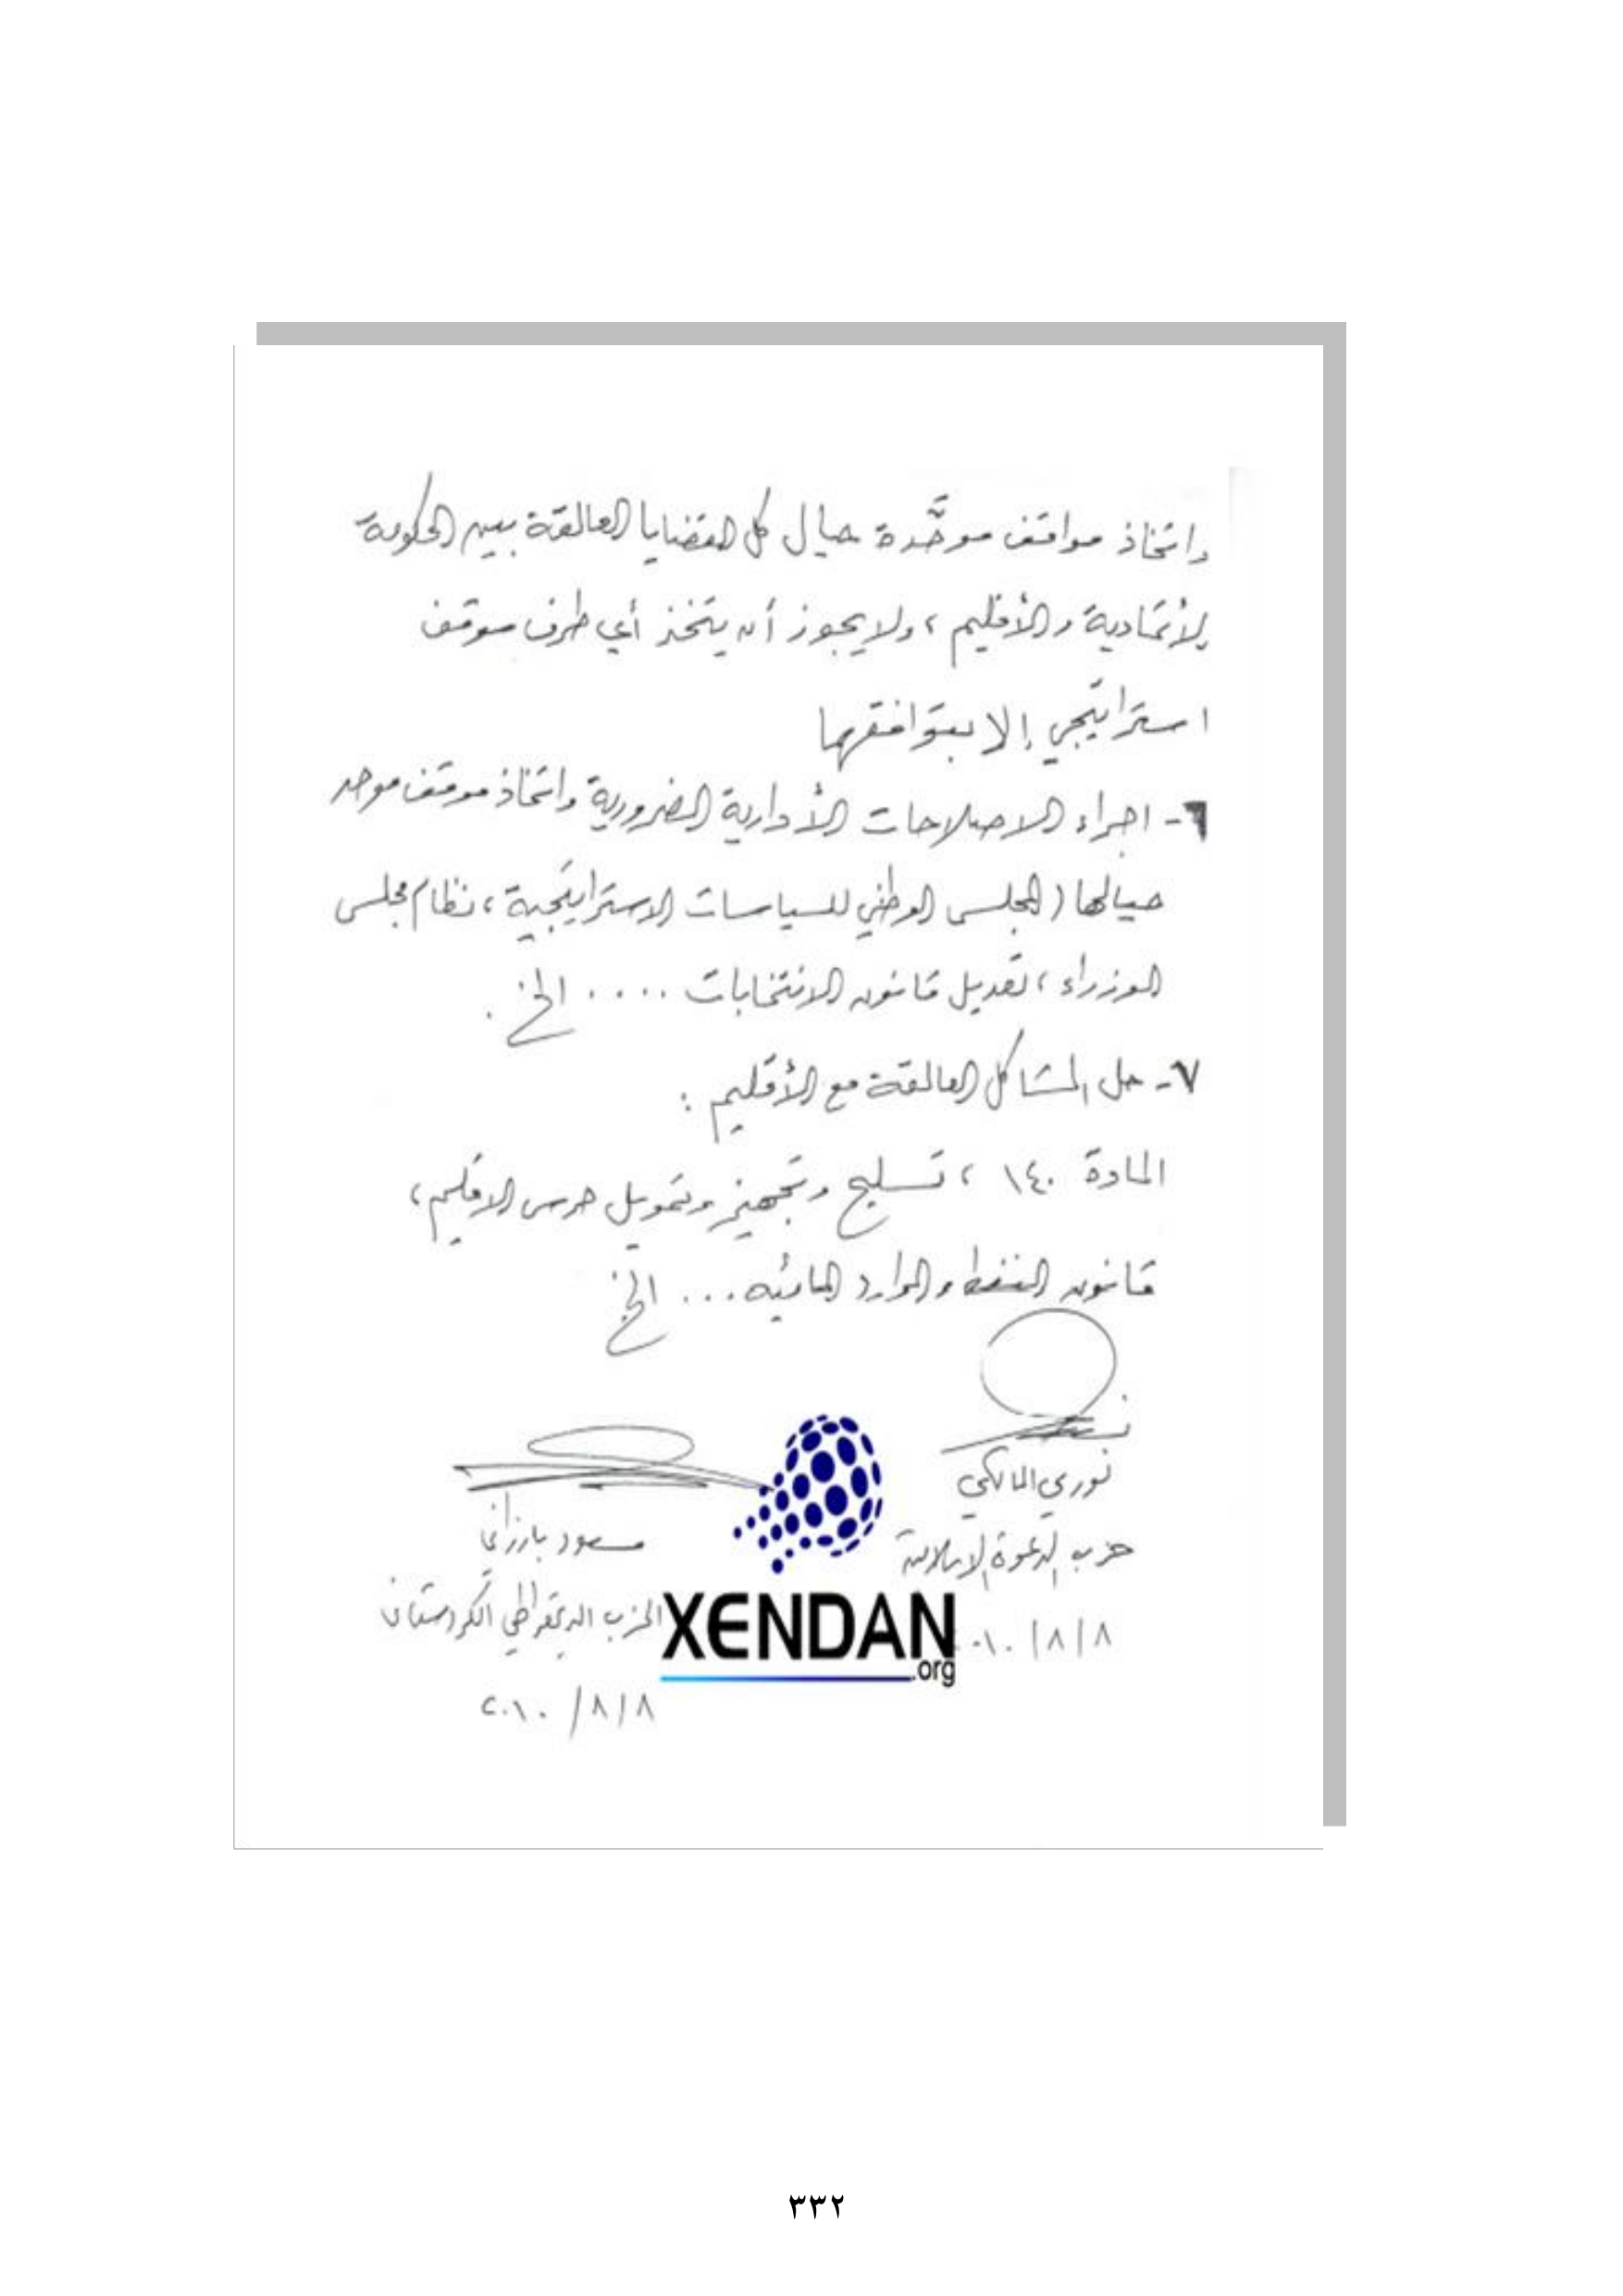 واتخاذ مواقف موحَّدة حيال كل القضايا العالقة بين الحكومة
الأتحادية والأقليم ، ولا يجوز أن يتخذ أي طرف موقف
استراتيجي إلا بتوافقهما
٦- اجراء الاصلاحات الأدارية الضرورية واتخاذ موقف موحد
حيالها (المجلس الوطني للسياسات الاستراتيجية ، نظام مجلس
الوزراء ، تعديل قانون الانتخابات .... الخ .
٧- حل المشاكل العالقة مع الأقليم :
المادة ١٤٠ ، تسليح وتجهيز وتمويل حرس الاقليم ،
قانون النفط والموارد المائيه ... الخ
نوري المالكي
حزب الدعوة الإسلامية
٨/٨/
مسعود بارزاني
الحزب الديمقراطي الكردستاني
٨/٨/٢٠١٠
XENDAN
.org
٣٣٢